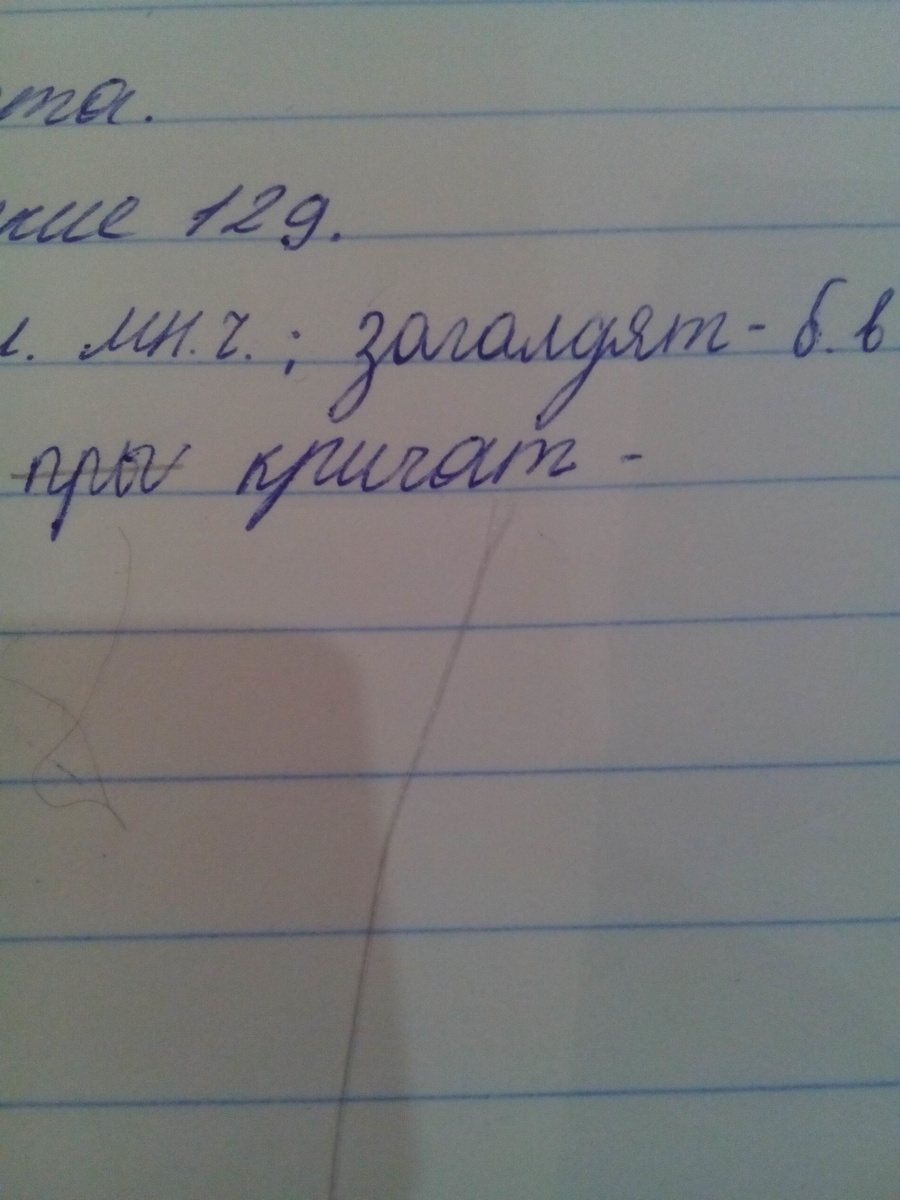 та.
ние 129.
л. мн.ч. ; загалдят - б. в
пры кричат -